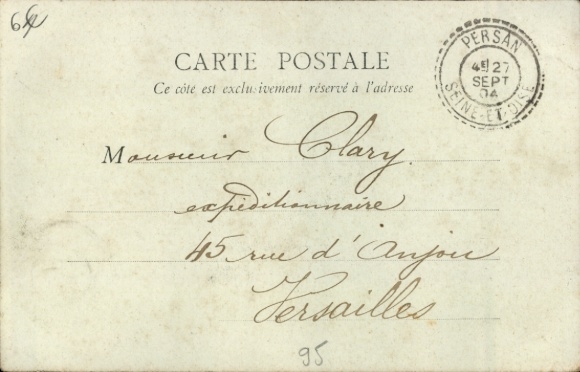 CARTE POSTALE
Ce côté est exclusivement réservé à l'adresse
PERSAN
4E 27
SEPT
04
SEINE-ET-OISE
Monsieur Clary.
expéditionnaire
45 rue d'Anjou
Versailles
95